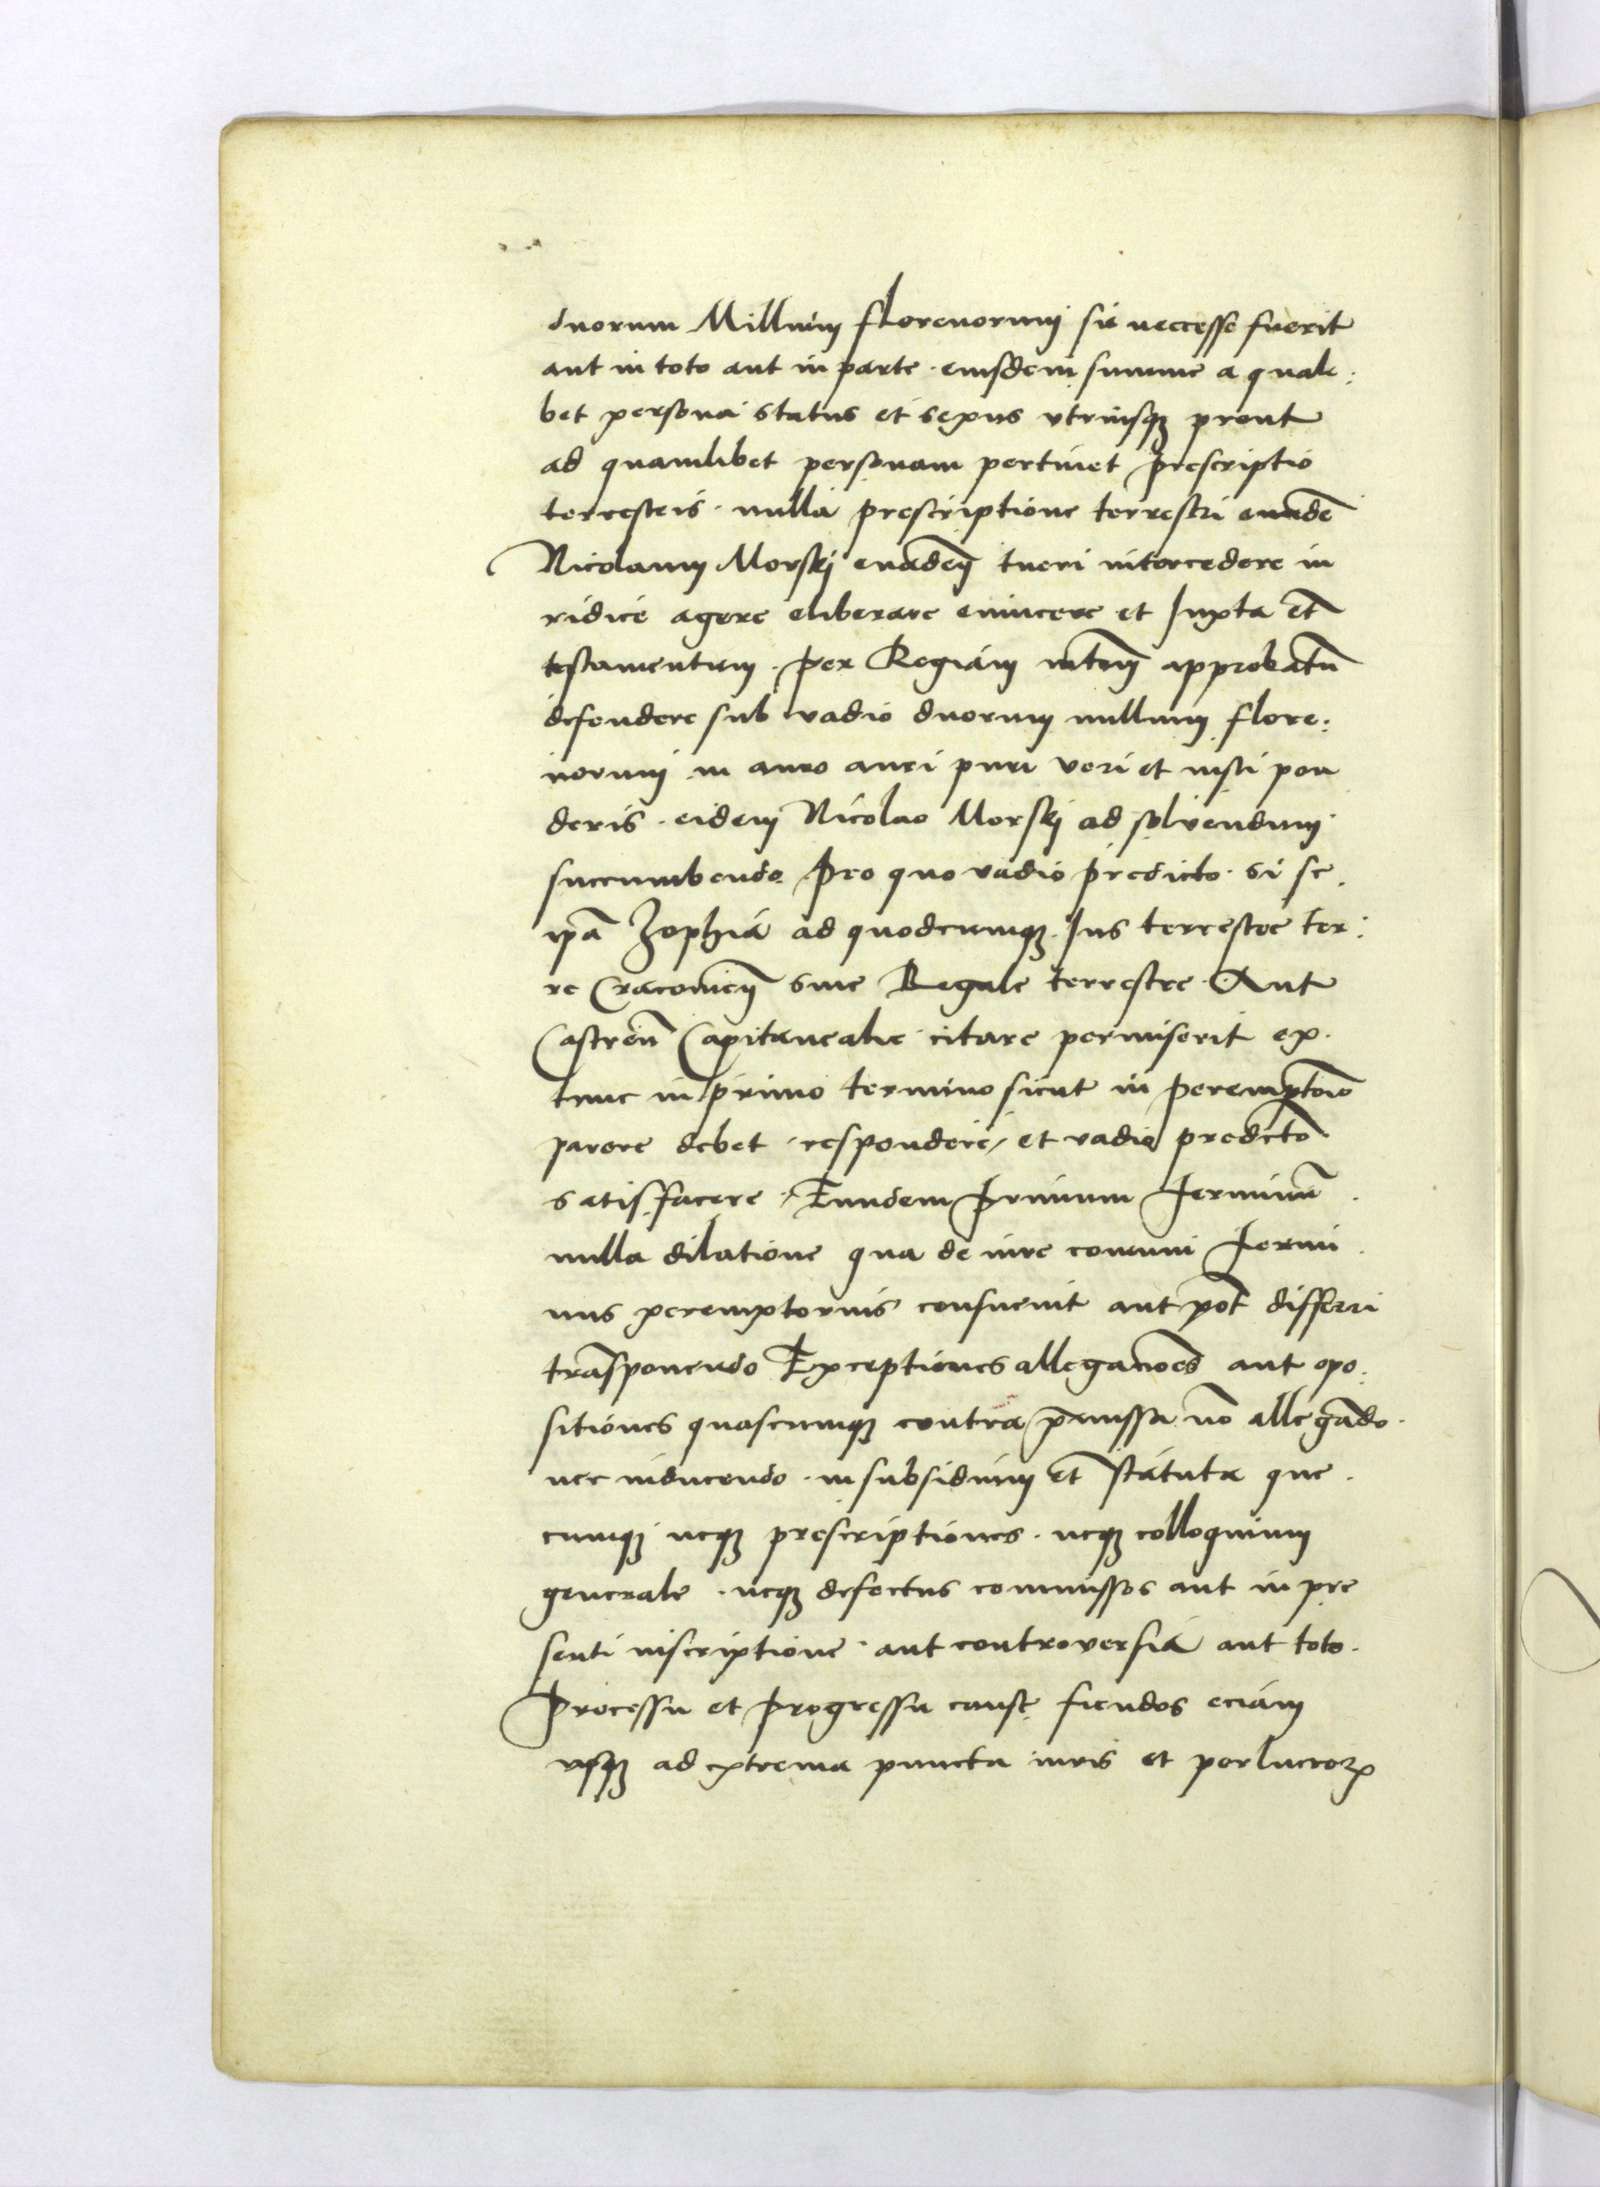 duorum Millium florenorum si neccesse fuerit
aut in toto aut in parte eiusdem summe a quale:
bet persona status et sexus utriusq3 prout
ad quamlibet personam pertinet prescriptio
terrestris. nulla prescriptione terrestri evadē
Nicolaum Morskj evadeñ tueri intercedere iu
ridice agere eliberare evincere et Juxta et̃
testamentum per Regiam mtem approbatũ
defendere sub vadio duorum millium flore:
norum in auro auri puri veri et iusti pon
deris. eidem Nicolao Morskj ad solvendum
succumbendo. Pro quo vadio predicto. si se.
ip̃a Zophia ad quodcumq3 Jus terrestre ter:
re Cracovieñ sive Regale terrestre Aut
Castreñ Capitaneale citare permiserit ex.
tunc in primo termino sicut in peremptoĩo
parere debet respondere, et vadio predicto
satisfacere. Eundem Primum Terminũ.
nulla dilatione qua de iure comuni Termi.
nus peremptorius consuevit aut põt differri
trãsponendo Exceptiones allegacioẽs aut opo:
sitiones quascumq3 contra p̃missa nõ allegãdo.
nec inducendo. in subsidium et̃ statuta que.
cumq3 neq3 prescriptiones. neq3 colloquium
generale. neq3 defectus commissos aut in pre
senti inscriptione. aut controversia aut toto.
Processu et Progressu cause fiendos eciam
usq3 ad extrema puncta iuris et perlucroꝝ